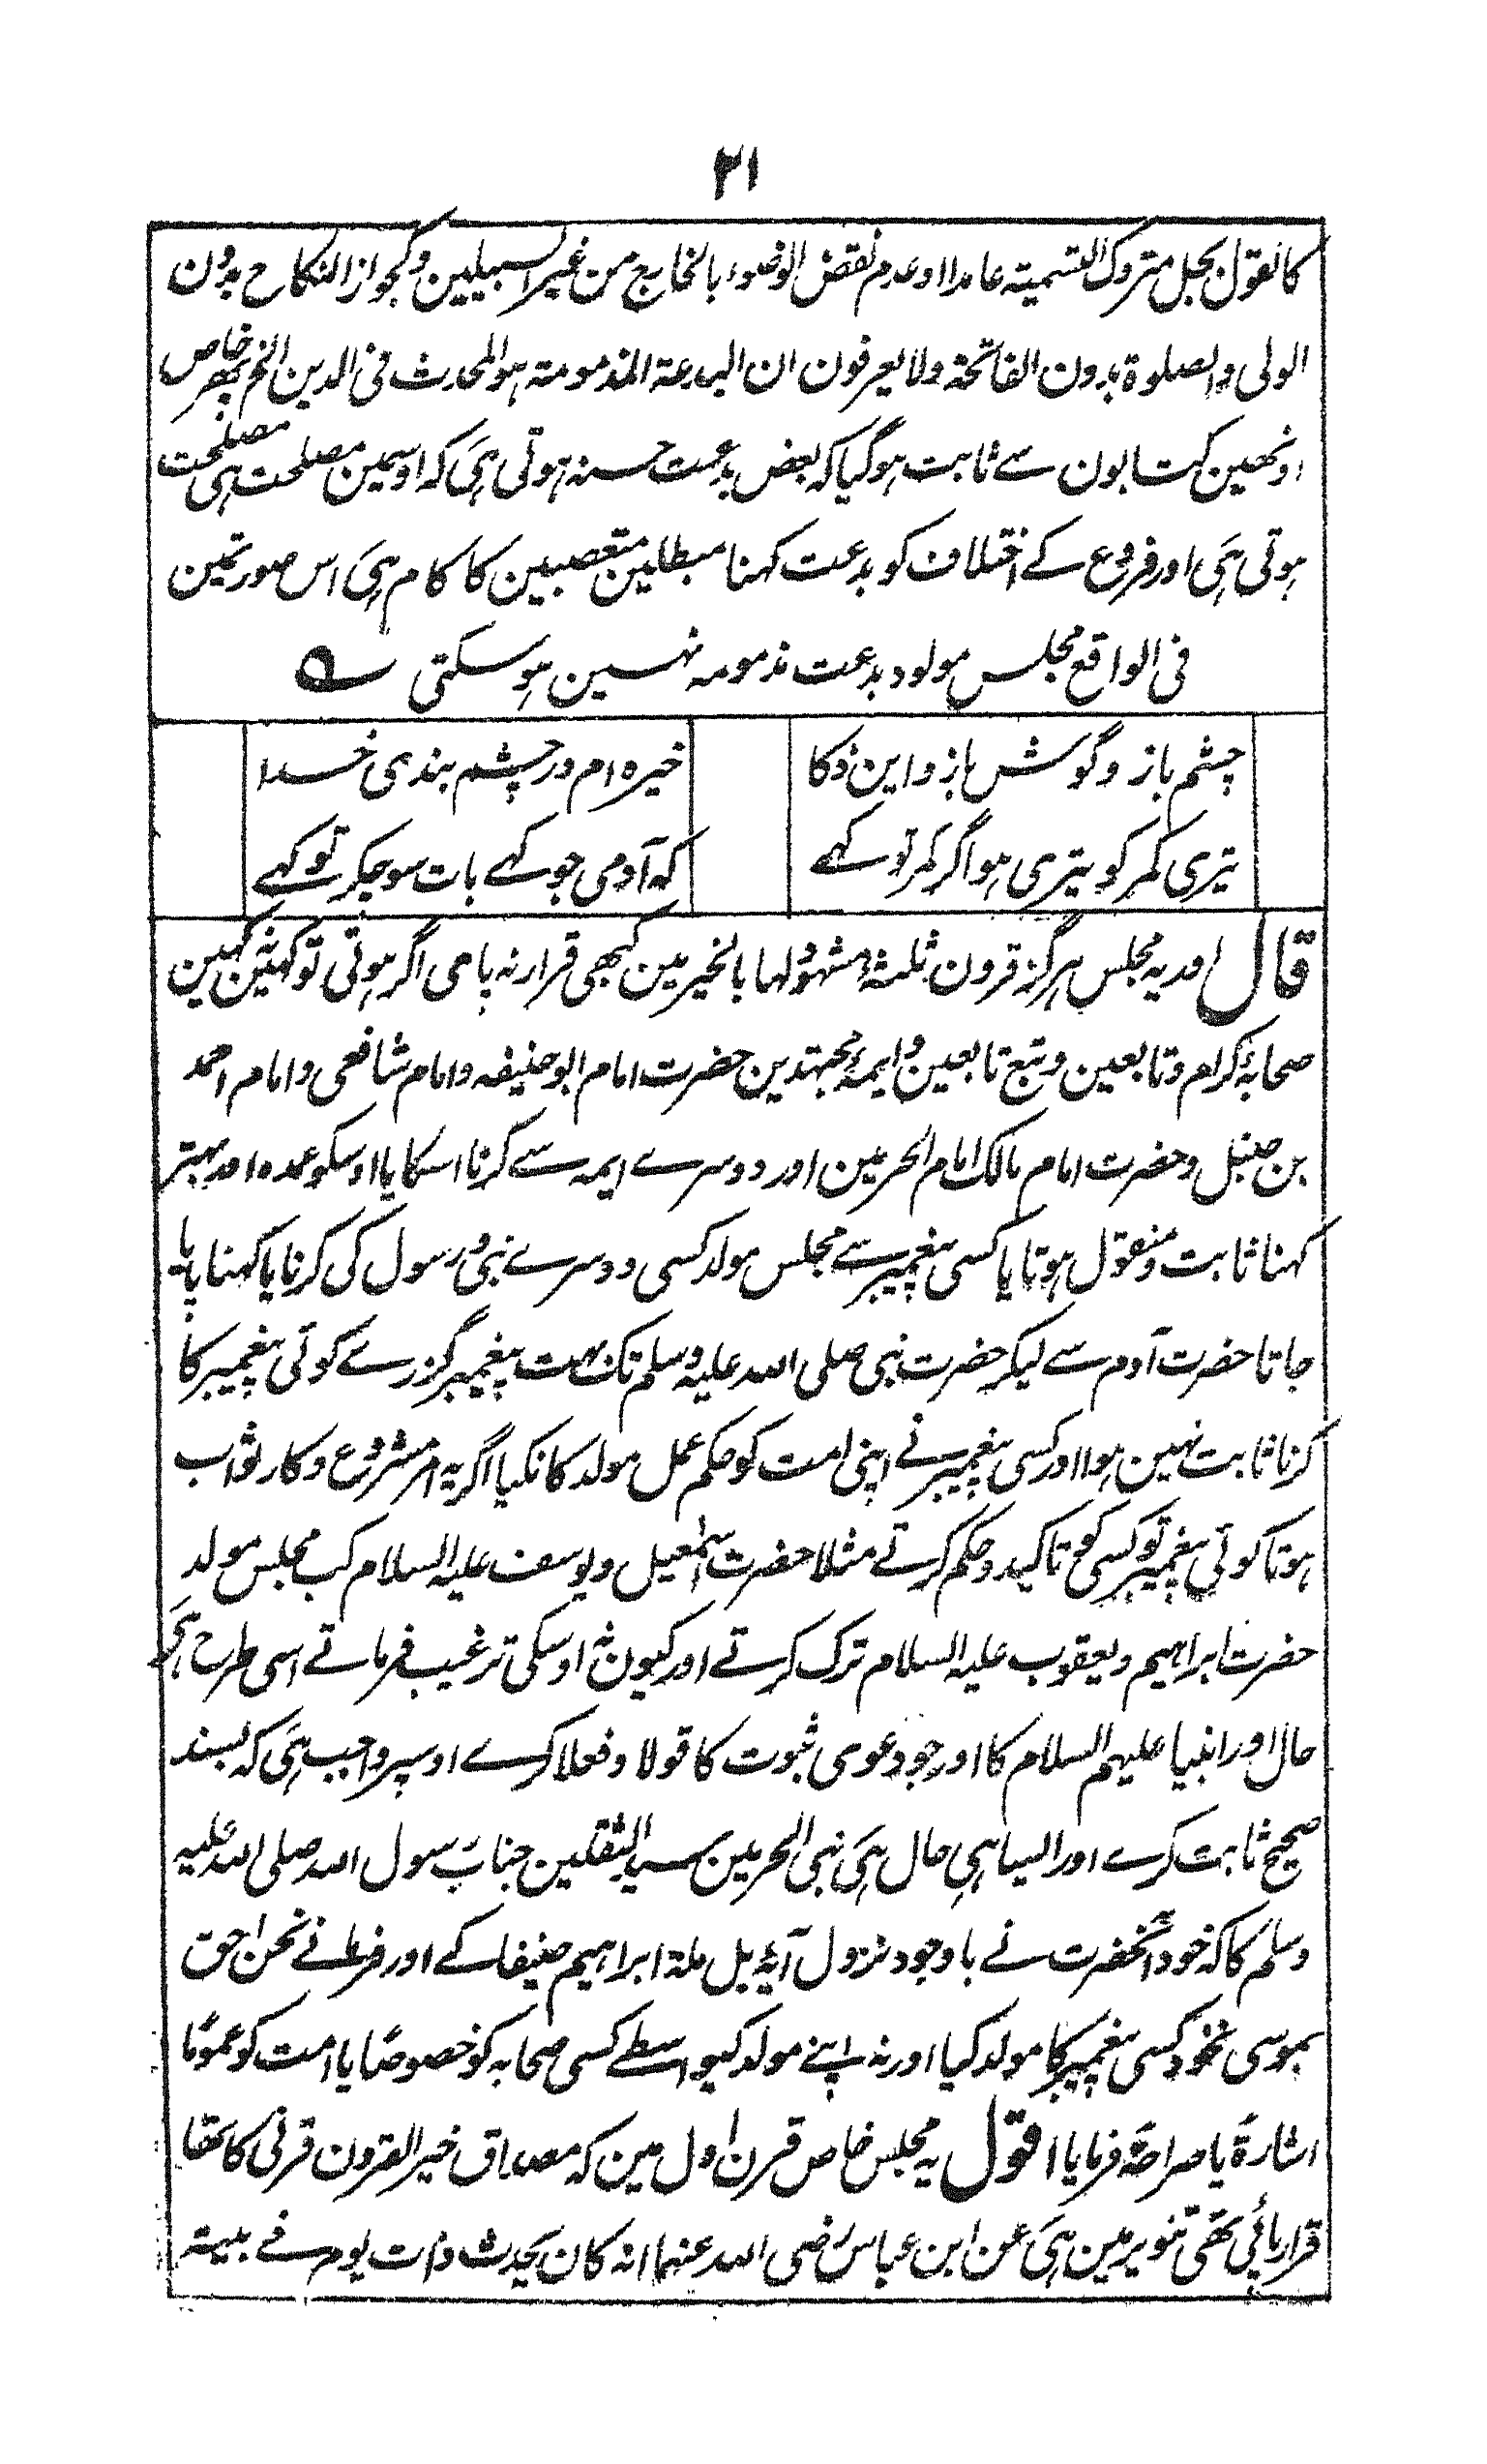 ۲۱
کالقول بحل متروک التسمیته عامدا او عدم نقض الوضوء بالخارج من غیر السبیلین وکجواز النکاح بدون
الولی والصلوة بدون الفاتحة ولا یعرفون ان البدعة المذمومته ہو المحدث فی الدین الخ پھر خاص
اونھین کتابون سے ثابت ہوگیا کہ بعض بدعت حسنہ ہوتی ہی کہ اوسمین مصلحت ہی مصلحت
ہوتی ہی اور فروع کے اختلاف کو بدعت کہنا مبطلین متعصبین کا کام ہی اس صورتمین
فی الواقع مجلس مولود بدعت مذمومہ نہین ہوسکتی
چشم باز و گوش باز و این ذکا
خیرہ ام در چشم بندی خدا
تیری کمر کو تیری ہو اگر کمر تو کہے
کہ آدمی جو کہے بات سوچکر تو کہے
قال اور یہ مجلس ہرگز قرون ثلثہ مشہود لہا بالخیر مین کبھی قرار نہ پامی اگر ہوتی تو کہین نہ کہین
صحابۂ کرام و تابعین و تبع تابعین و ایمۂ مجتہدین حضرت امام ابو حنیفہ و امام شافعی و امام احمد
بن حنبل و حضرت امام مالک امام الحرمین اور دوسرے ایمہ سے کرنا اسکا یا اوسکو عمدہ اور بہتر
کہنا ثابت و منقول ہوتا یا کسی پیغمبر سے مجلس مولد کسی دوسرے نبی و رسول کی کرنا یا کہنا پایا
جاتا حضرت آدم سے لیکر حضرت نبی صلی اللہ علیہ وسلم تک بہت پیغمبر گزرے کوئی پیغمبر کا
کرنا ثابت نہین ہوا اور کسی پیغمبر نے اپنی امت کو حکم عمل مولد کا نکیا اگر یہ امر مشروع و کار ثواب
ہوتا کوئی پیغمبر تو کسی کو تاکید و حکم کرتے مثلا حضرت اسمٰعیل و یوسف علیہ السلام کب مجلس مولد
حضرت ابراہیم و یعقوب علیہ السلام ترک کرتے اور کیون نہ اوسکی ترغیب فرماتے اسی طرح ہی
حال اور انبیا علیہم السلام کا اور جو دعوی ثبوت کا قولا و فعلا کرے اوسپر واجب ہی کہ بسند
صحیح ثابت کرے اور ایسا ہی حال ہی نبی الحرمین سید الثقلین جناب رسول اللہ صلی اللہ علیہ
وسلم کا کہ خود آنحضرت نے باوجود نزول آیۂ بل ملة ابراھیم حنیفا کے اور فرمانے نحن احق
بموسی نخود کسی پیغمبر کا مولد کیا اور نہ اپنے مولد کیواسطے کسی صحابہ کو خصوصًا یا امت کو عمومًا
اشارةً یا صراحةً فرمایا اقول یہ مجلس خاص قرن اول مین کہ مصداق خیر القرون قرنی کا تھا
قرار پائی تھی تنویر مین ہی عن ابن عباس رضی اللہ عنہما انہ کان یحدث ذات یوم فے بیته